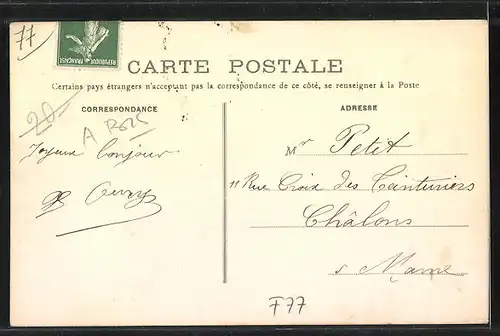 77
REPUBLIQUE FRANÇAISE
CARTE POSTALE
Certains pays étrangers n'acceptant pas la correspondance de ce côté, se renseigner à la Poste
CORRESPONDANCE
ADRESSE
20
Joyeux bonjour
Mr Petit
11 Rue Croix des Teinturiers
Châlons
s Marne
F77